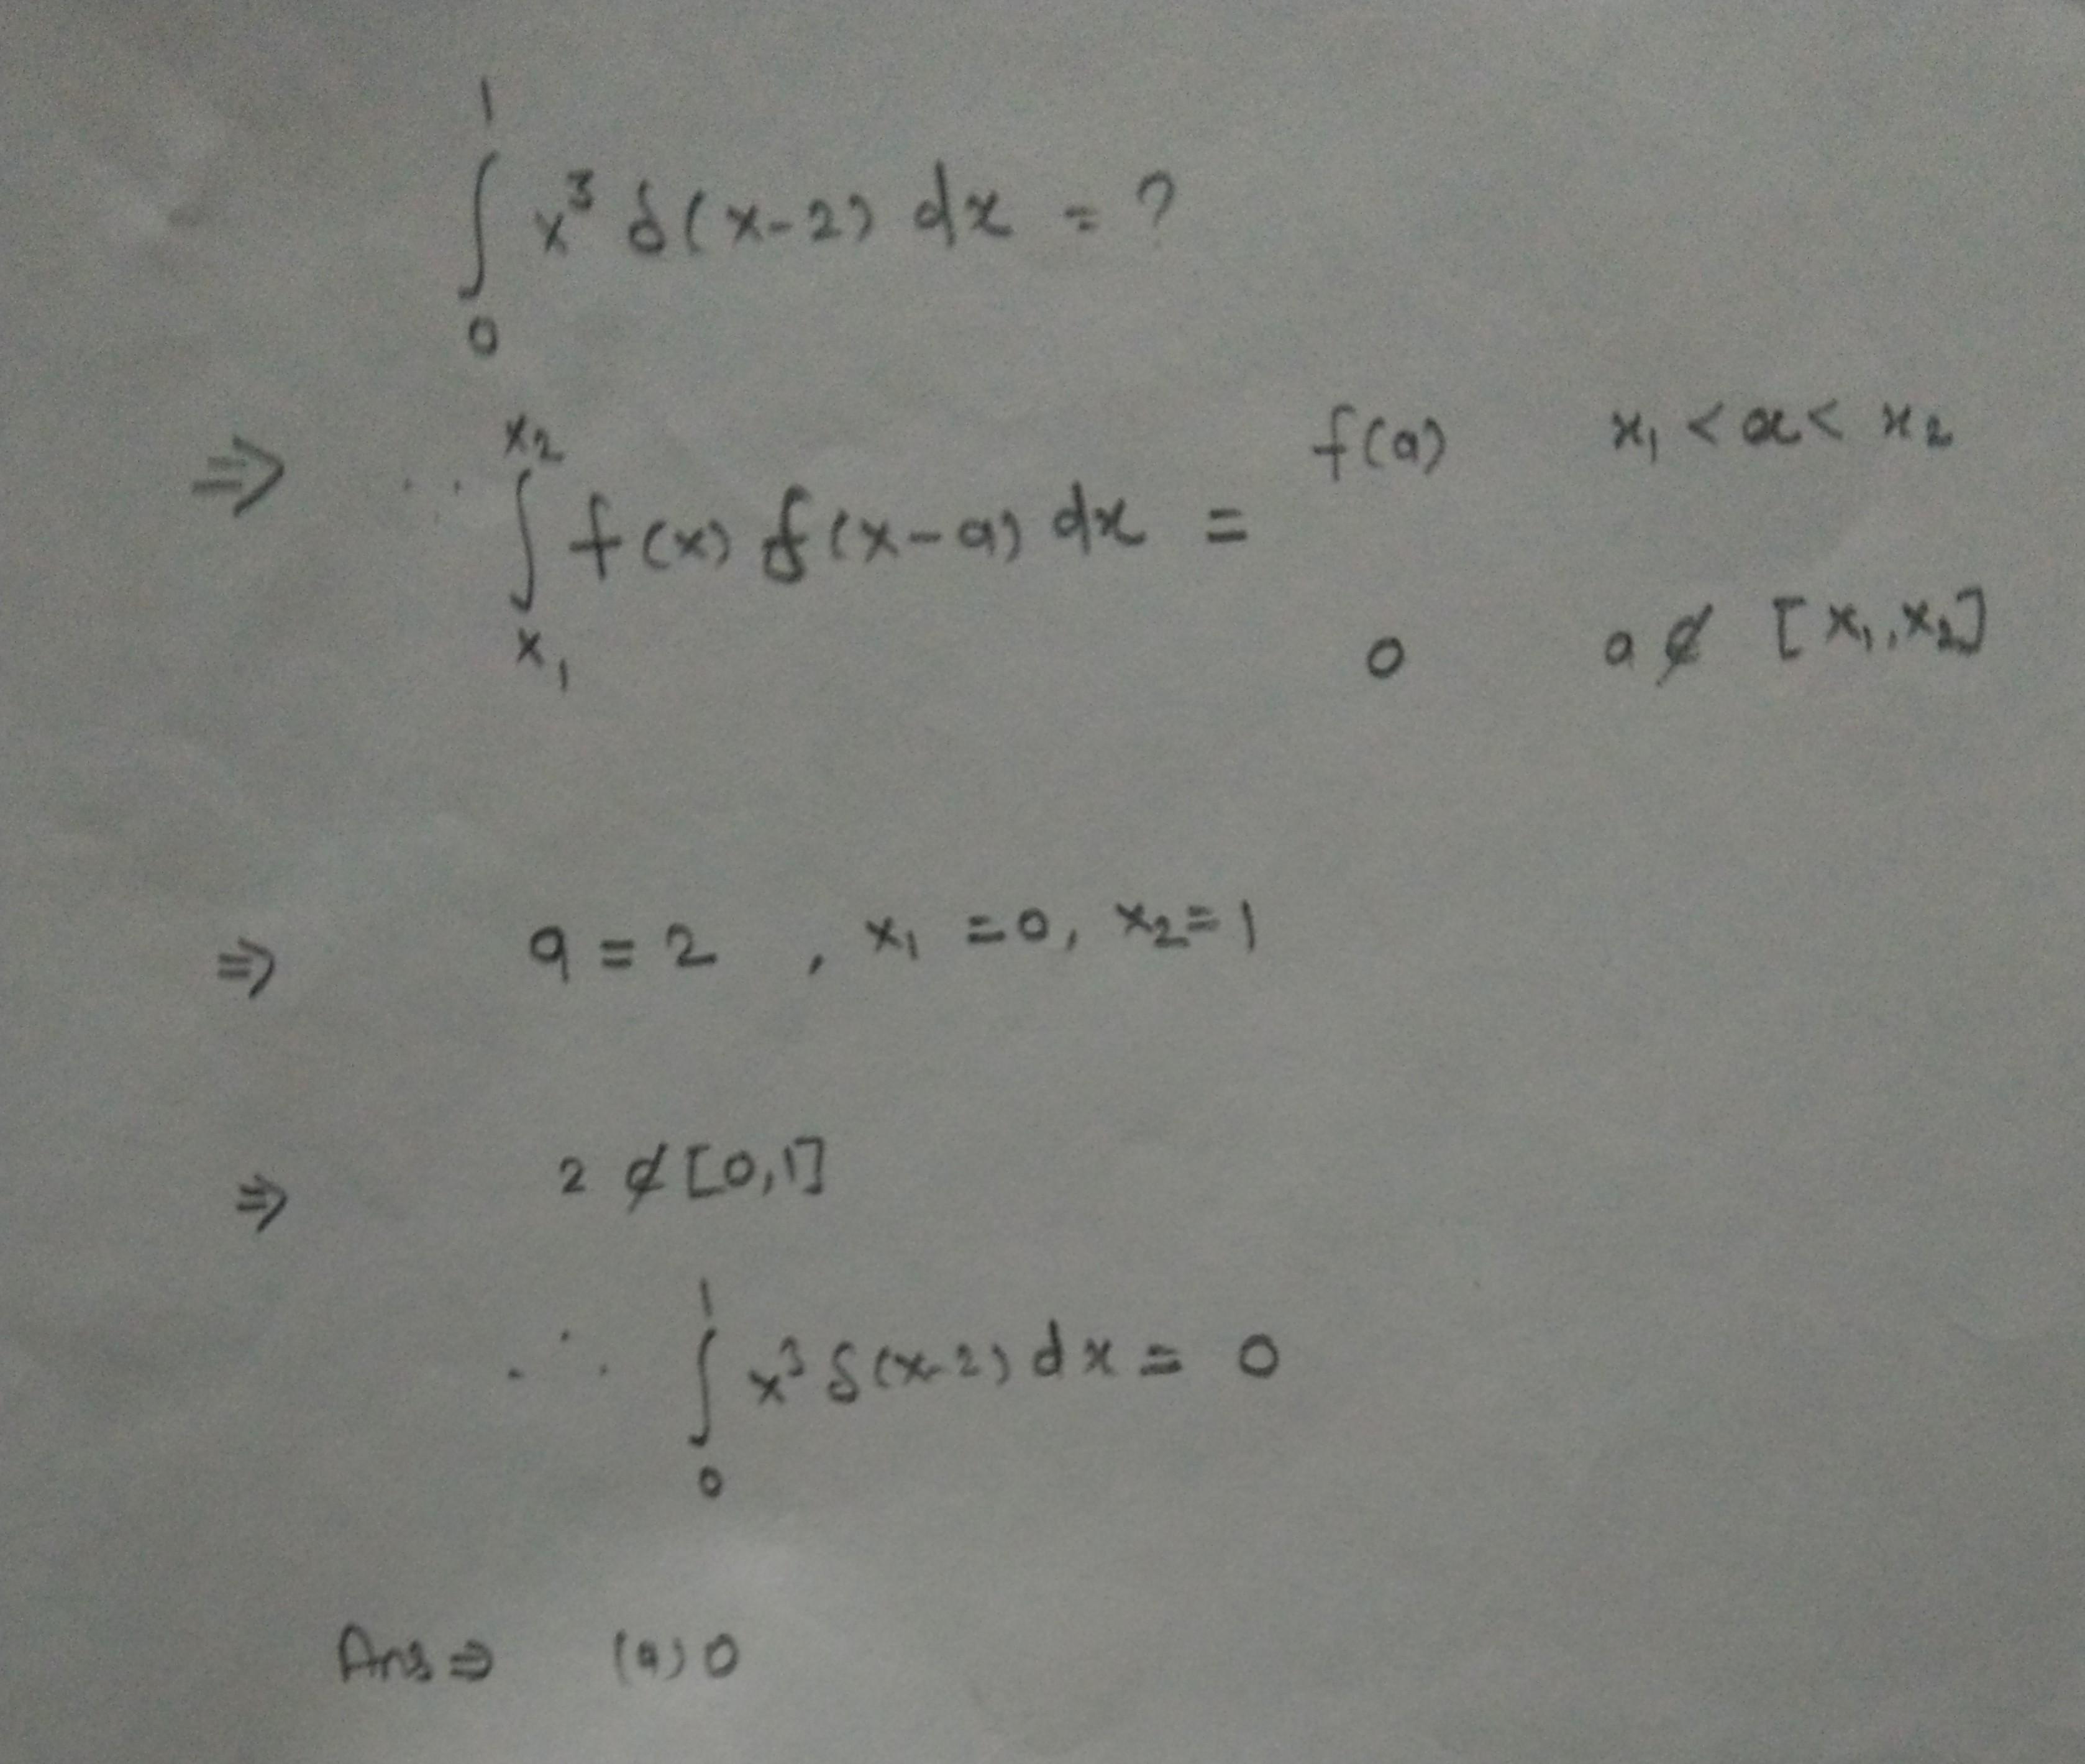 ∫₀¹ x³ δ(x-2) dx = ?
⇒ ∵ ∫ₓ₁ˣ² f(x) δ(x-a) dx = f(a) x₁ < a < x₂
0 a ∉ [x₁, x₂]
⇒ a = 2 , x₁ = 0, x₂ = 1
⇒ 2 ∉ [0,1]
∴ ∫₀¹ x³ δ(x-2) dx = 0
Ans ⇒ (a) 0